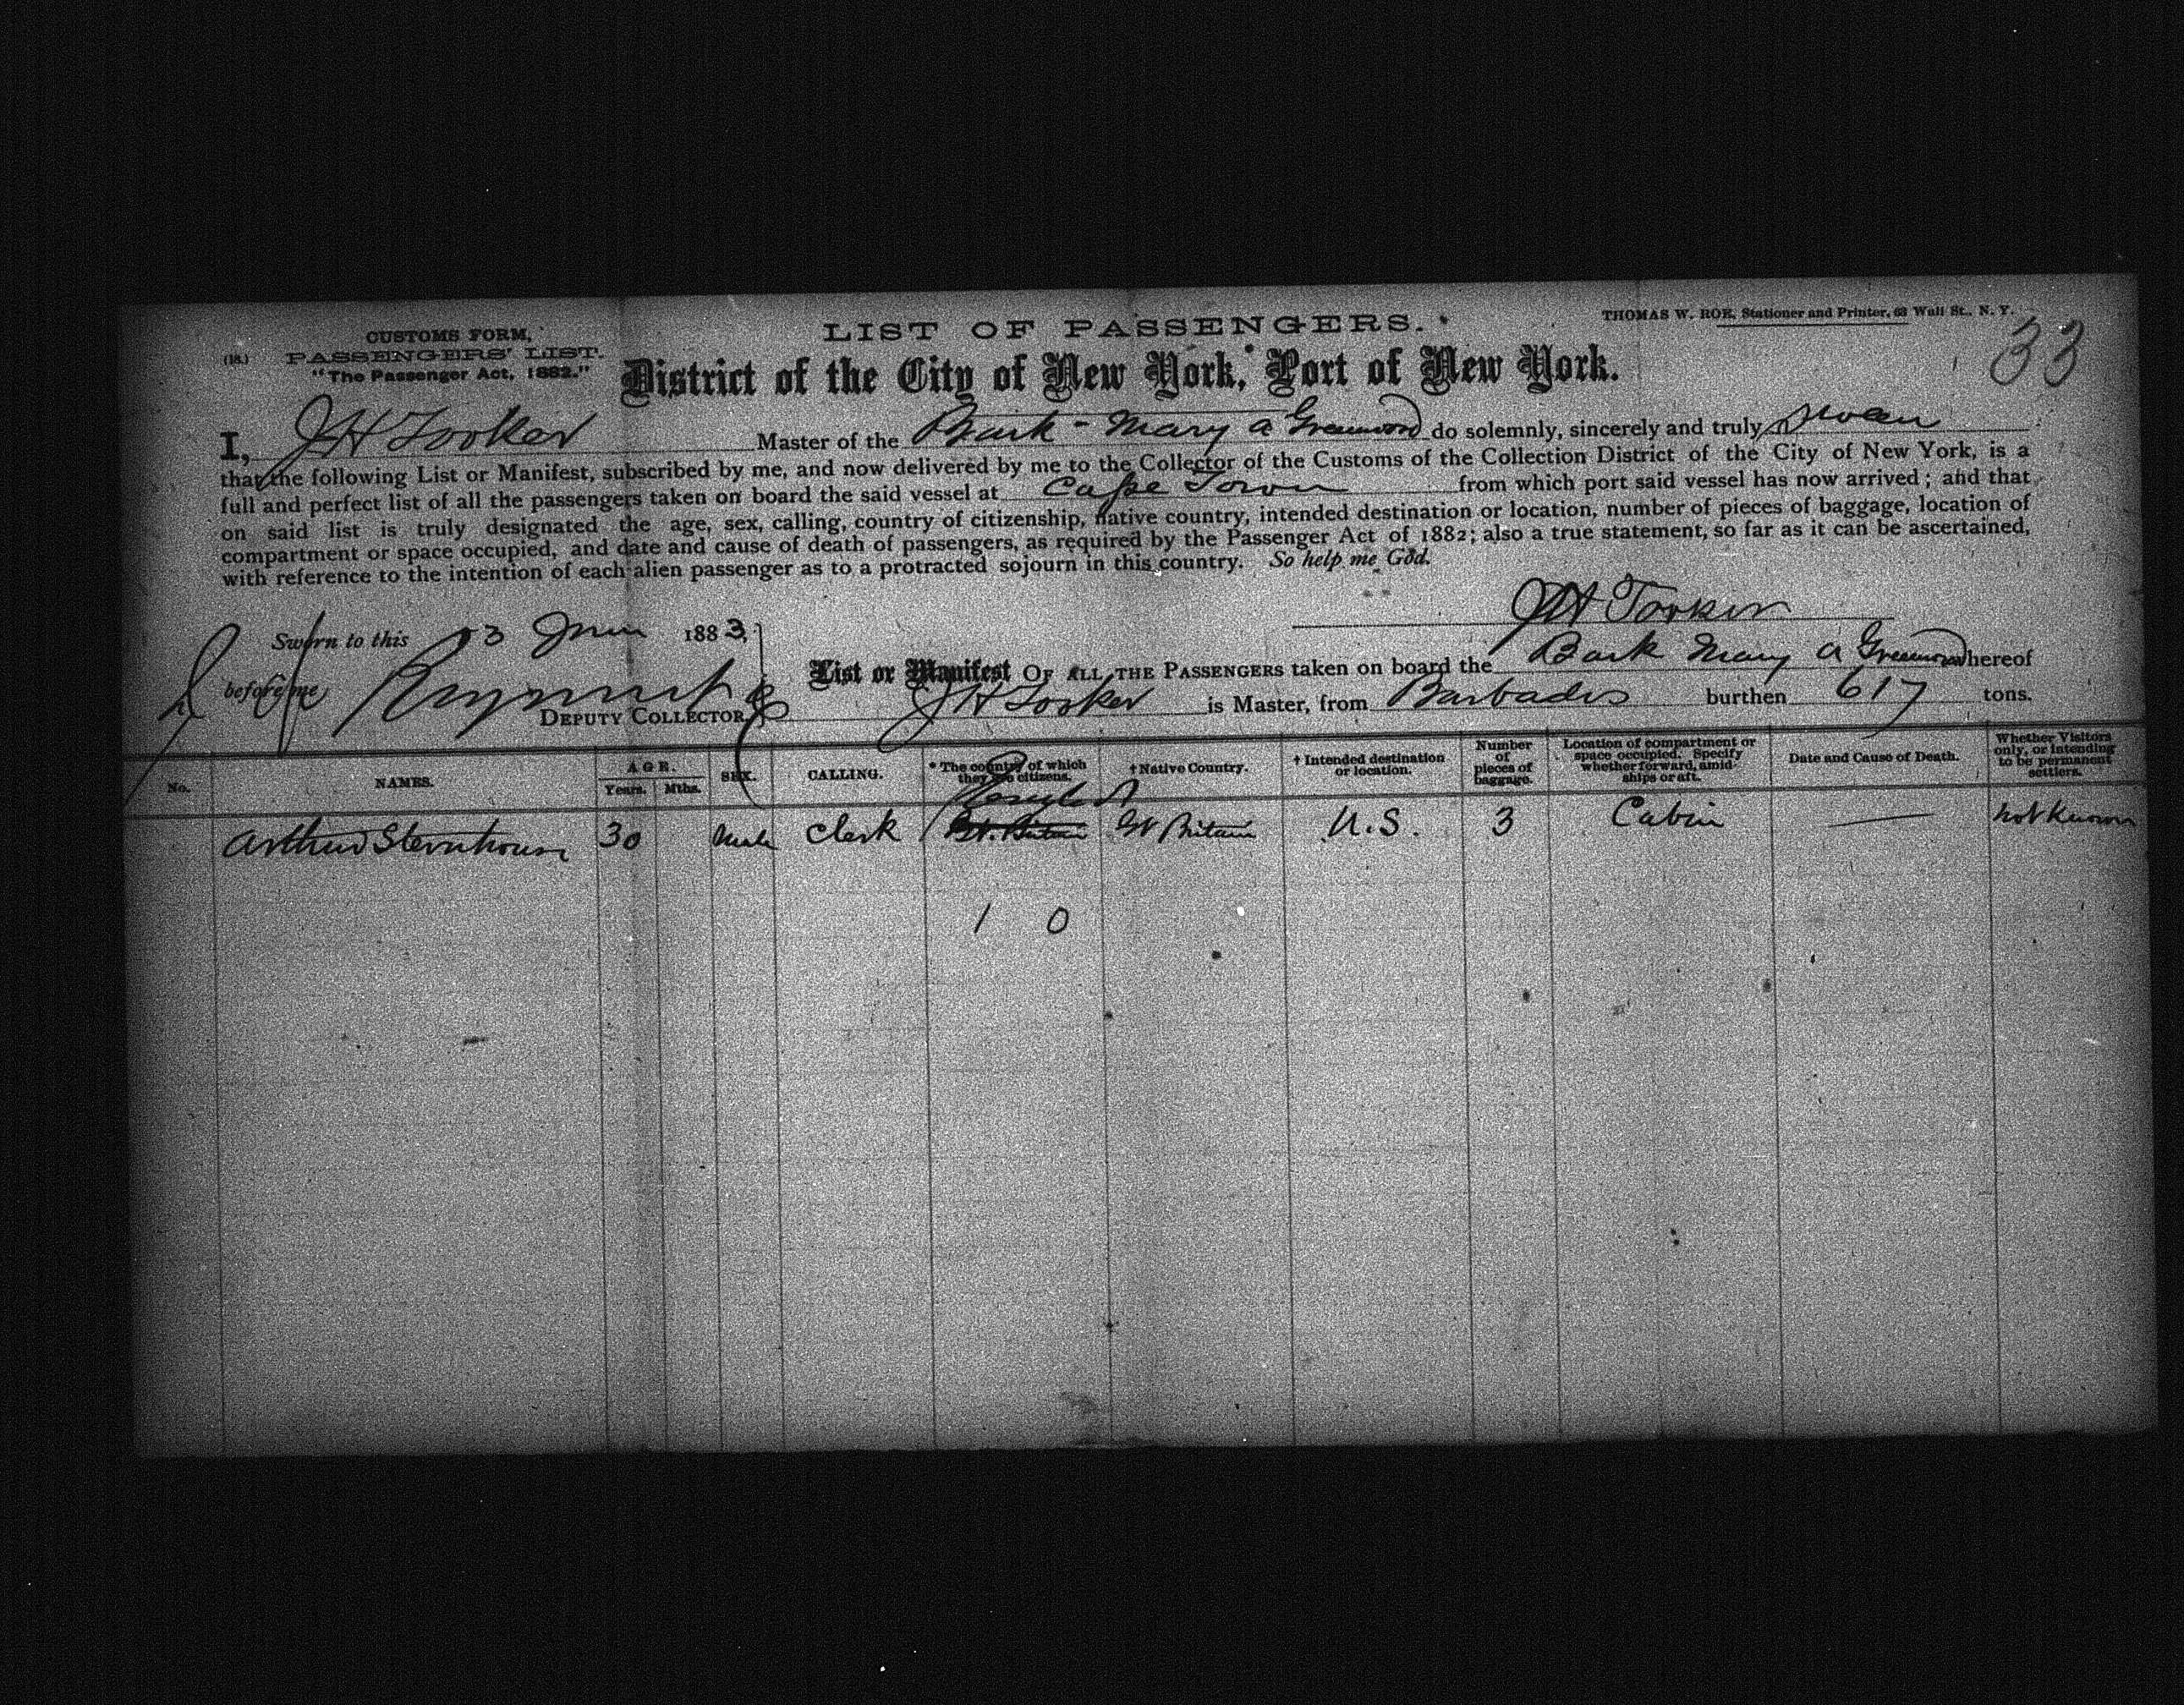 CUSTOMS FORM,
(18.) PASSENGERS' LIST.
"The Passenger Act, 1882."
LIST OF PASSENGERS.
THOMAS W. ROE, Stationer and Printer, 63 Wall St., N. Y.
33
District of the City of New York, Port of New York.
I, J H Tooker Master of the Bark - Mary A Greenwood do solemnly, sincerely and truly swear
that the following List or Manifest, subscribed by me, and now delivered by me to the Collector of the Customs of the Collection District of the City of New York, is a
full and perfect list of all the passengers taken on board the said vessel at Cape Town from which port said vessel has now arrived; and that
on said list is truly designated the age, sex, calling, country of citizenship, native country, intended destination or location, number of pieces of baggage, location of
compartment or space occupied, and date and cause of death of passengers, as required by the Passenger Act of 1882; also a true statement, so far as it can be ascertained,
with reference to the intention of each alien passenger as to a protracted sojourn in this country. So help me God.
J H Tooker
Sworn to this 13 June 1883,
before me,
DEPUTY COLLECTOR.
List or Manifest OF ALL THE PASSENGERS taken on board the Bark Mary A Greenwood whereof
J H Tooker is Master, from Barbados burthen 617 tons.
No. NAMES. AGE. Years. Mths. SEX. CALLING. * The country of which they are citizens. † Native Country. † Intended destination or location. Number of pieces of baggage. Location of compartment or space occupied. Specify whether forward, amidships or aft. Date and Cause of Death. Whether Visitors only, or intending to be permanent settlers.
Arthur Stenhouse 30 Male Clerk Gt. Britain Gt Britain U.S. 3 Cabin — not known
1 0